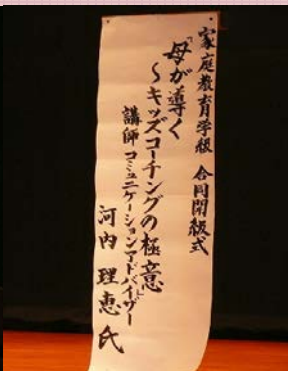 家庭教育学級 合同開級式
「母が導く
～キッズコーチングの極意」
講師 コミュニケーションアドバイザー
河内 理恵 氏